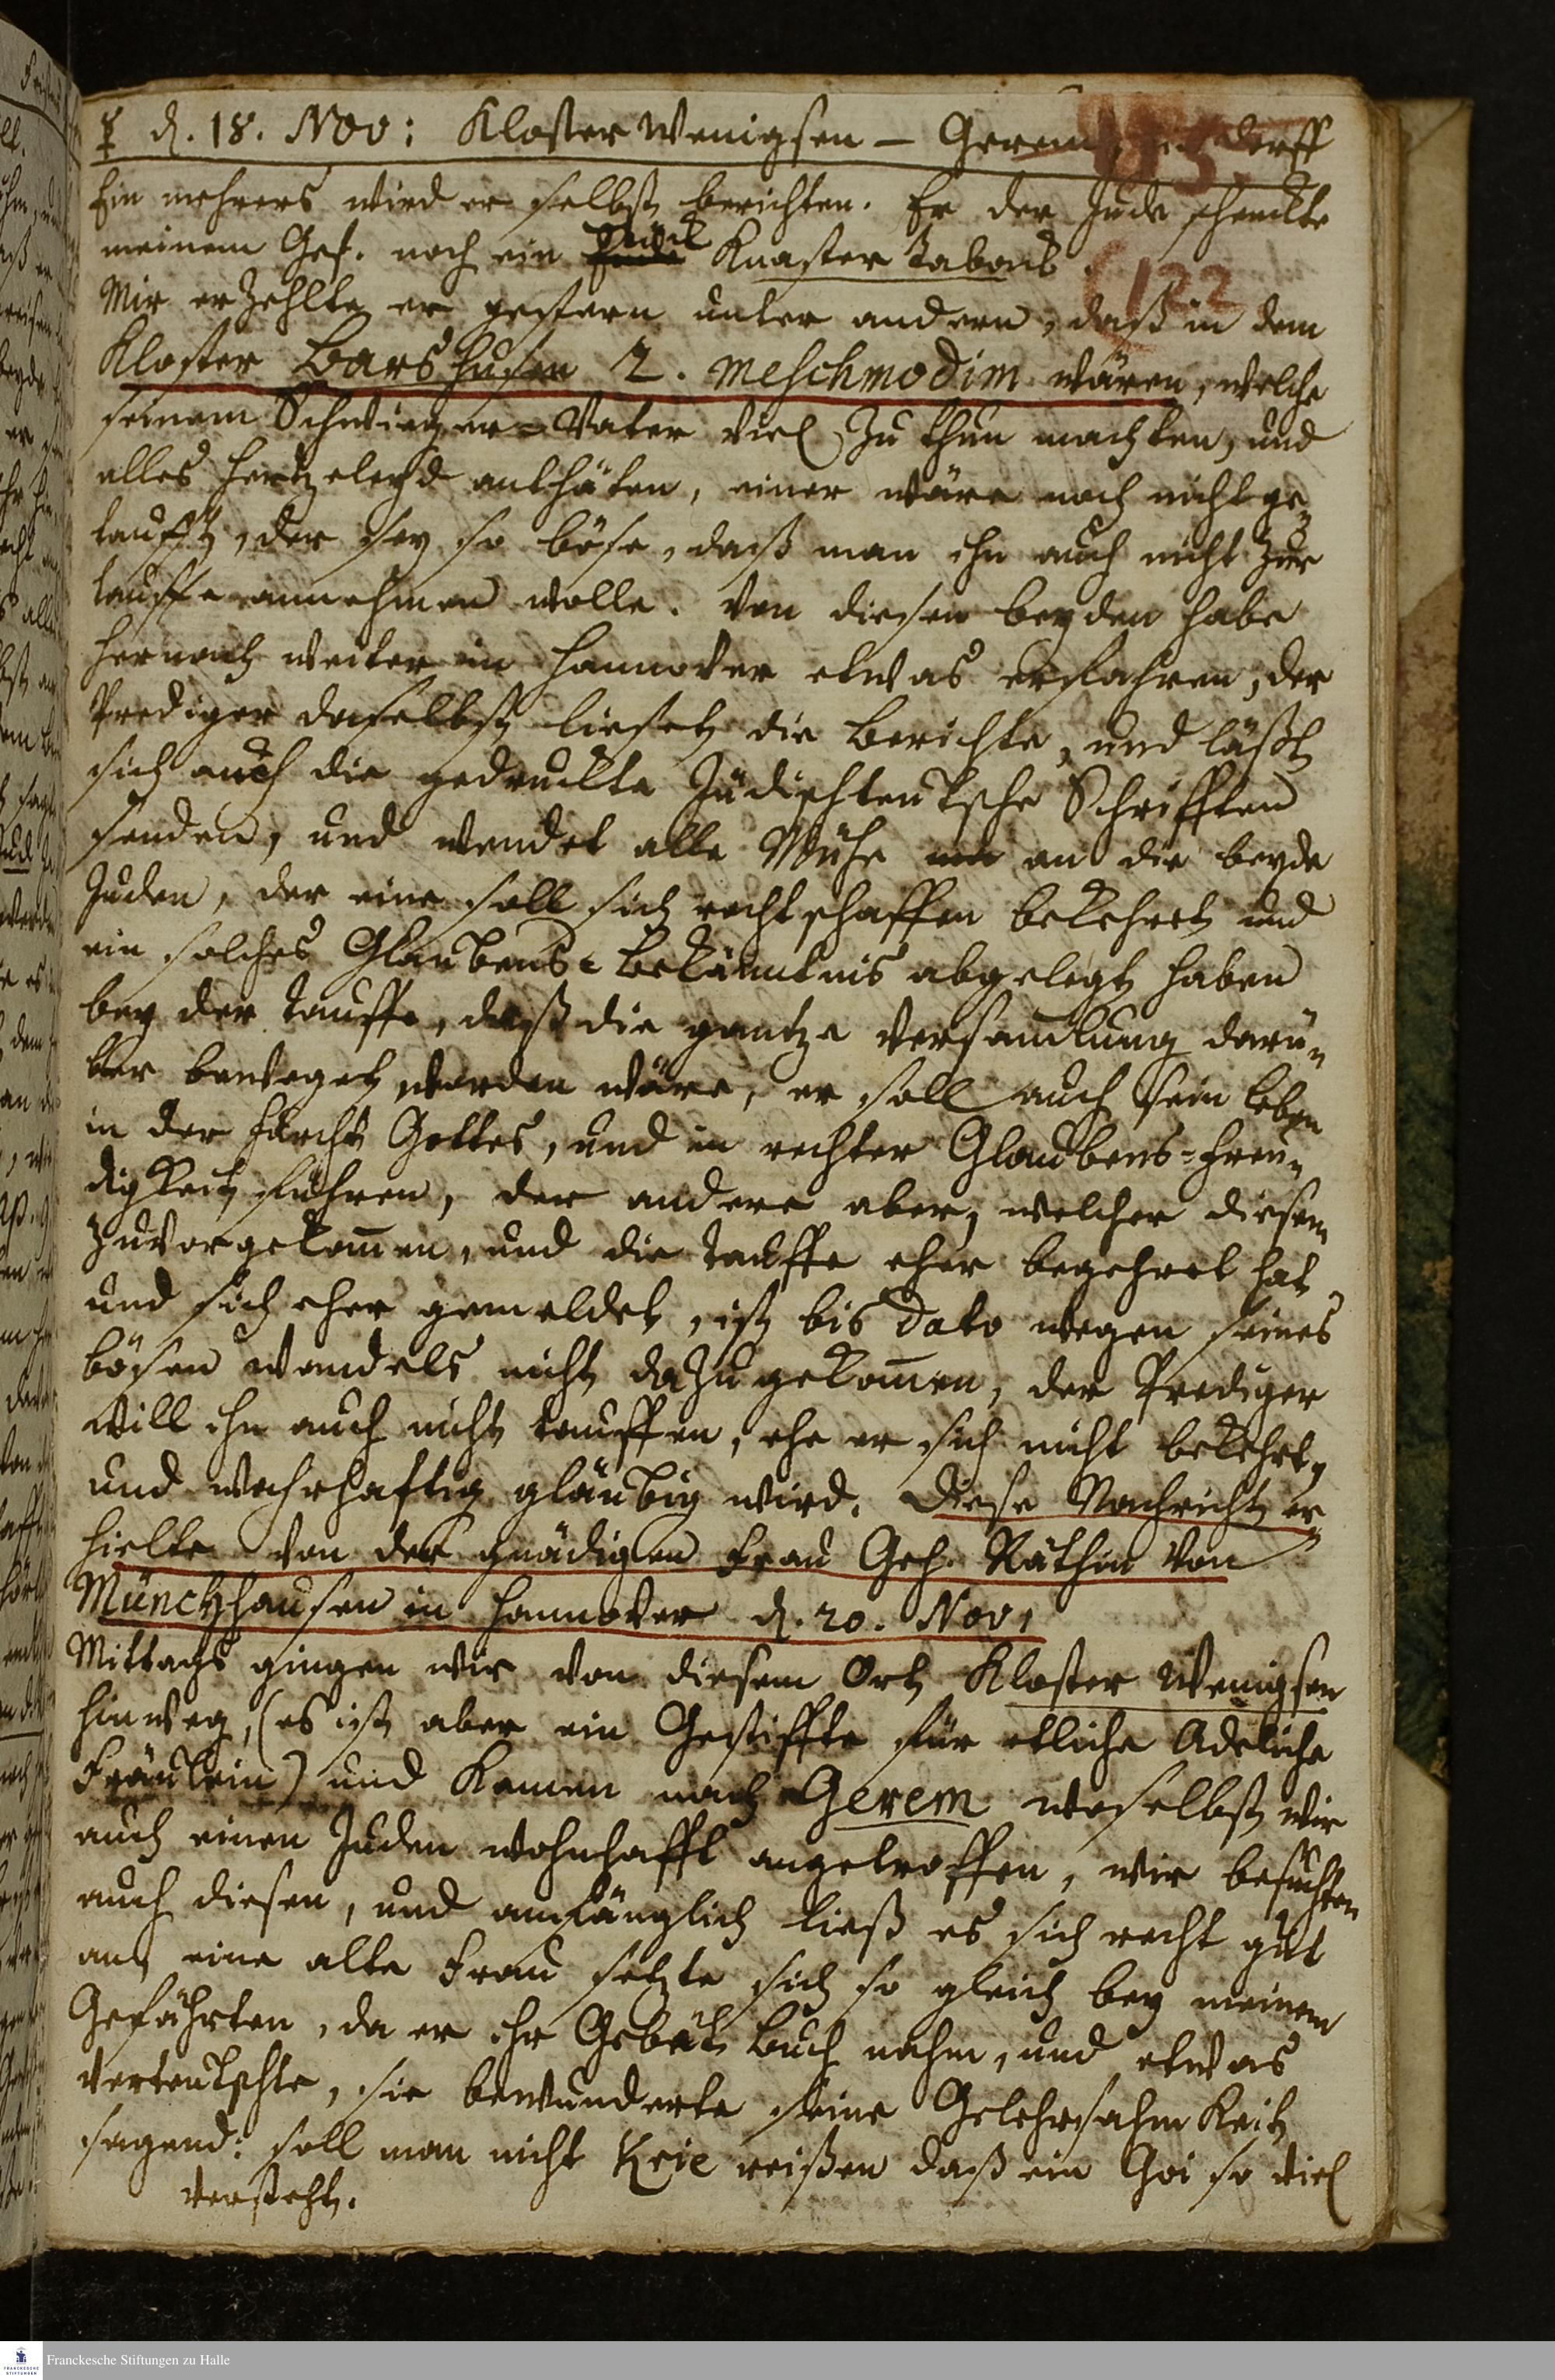 ☿ d. 18. Nov: Kloster Wenigsen – Gerem, dorff
Ein mehrers wird er selbst berichten. Er der Jude schenckte
meinem Gef. noch ein Stück Knaster Taback.
122
Mir erzehlte er gestern unter andern, daß in dem
Kloster Barshusen 2. Meschmodim wären, welche
seinem Schwieger-Vater viel zu thun machten, und
alles Hertzeleyd anthäten, einer wäre noch nicht ge-
taufft, der sey so böse, daß man ihn auch nicht zur
Tauffe annehmen wolle. Von diesen beyden habe
hernach weiter in Hannover etwas erfahren, der
Prediger daselbst lieset die Berichte, und läßt
sich auch die gedruckte Jüdischteutsche Schrifften
senden, und wendet alle Mühe an die beyde
Juden, der eine soll sich rechtschaffen bekehret und
ein solches Glaubens-Bekäntnis abgelegt haben
bey der Tauffe, daß die gantze Versamlung darü-
ber beweget worden wäre, er soll auch sein Leben
in der Furcht Gottes, und in rechter Glaubens-Freu-
digkeit führen, der andere aber, welcher diesem
zuvorgekomen, und die Tauffe eher begehret hat,
und sich eher gemeldet, ist bis dato wegen seines
bösen wandels nicht dazu gekomen, der Prediger
will ihn auch nicht tauffen, ehe er sich nicht bekehrt,
und wahrhafftig gläubig wird. Diese Nachricht er-
hielte von der gnädigen Frau Geh. Räthin von
Münchhausen in Hannover d. 20. Nov,
Mittags gingen wir von diesem Ort Kloster Wenigsen
hinweg, (es ist aber ein Gestiffte für etliche Adeliche
Fräulein) und kamen nach Gerem woselbst wir
auch einen Juden wohnhafft angetroffen, wir besuchten
auch diesen, und anfänglich ließ es sich recht gut
an, eine alte Frau setzte sich so gleich bey meinem
Gefährten, da er ihr Gebät Buch nahm, und etwas
verteutschte, sie bewunderte seine Gelehrsahmkeit
sagend: soll man nicht Krie reißen daß ein Goi so viel
versteht.
Franckesche Stiftungen zu Halle